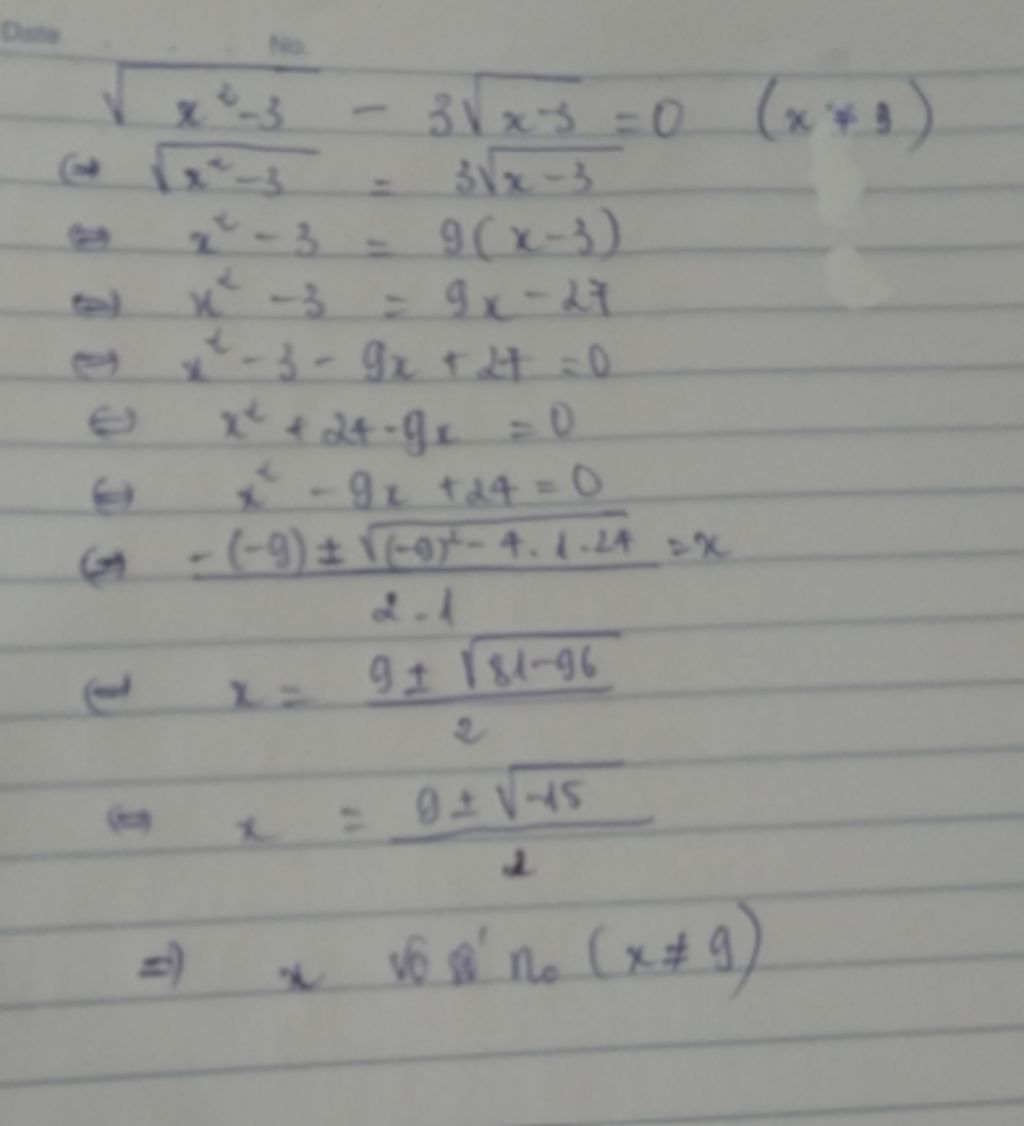 Date No.
√(x²-3) - 3√(x-3) = 0 (x ≠ 9)
⇔ √(x²-3) = 3√(x-3)
⇔ x² - 3 = 9(x-3)
⇔ x² - 3 = 9x - 27
⇔ x² - 3 - 9x + 27 = 0
⇔ x² + 24 - 9x = 0
⇔ x² - 9x + 24 = 0
⇔ (-(-9) ± √((-9)² - 4.1.24))/(2.1) = x
⇔ x = (9 ± √(81-96))/2
⇔ x = (9 ± √(-15))/2
⇒ x vô số no (x ≠ 9)